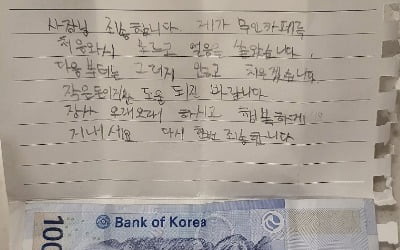 사장님 죄송합니다 제가 무인카페를
처음와서 모르고 얼음을 쏟았습니다
다음 부터는 그러지 않고 치우겠습니다
작은돈이지만 도움 되길 바랍니다
장사 오래오래 하시고 행복하게
지내세요 다시 한번 죄송합니다
Bank of Korea
100